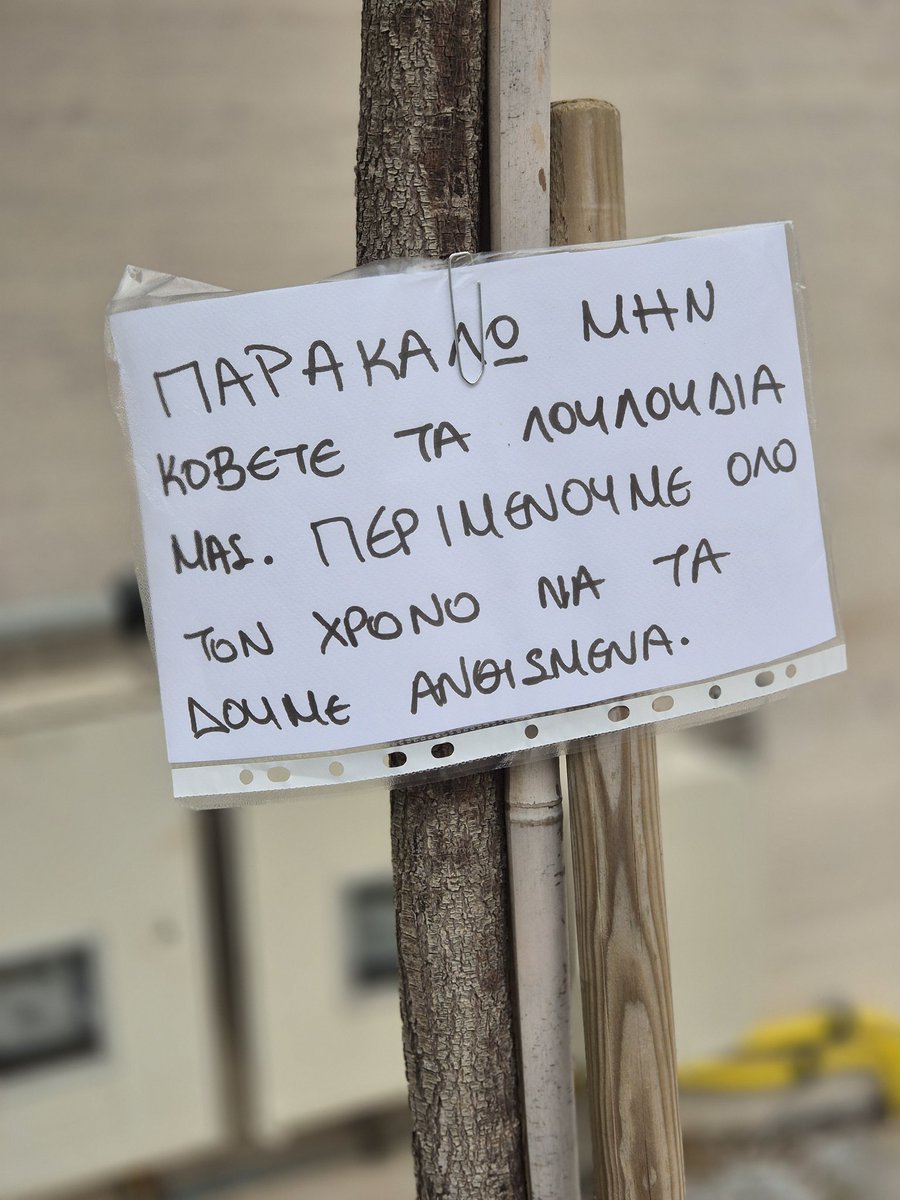 ΠΑΡΑΚΑΛΩ ΜΗΝ
ΚΟΒΕΤΕ ΤΑ ΛΟΥΛΟΥΔΙΑ
ΜΑΣ. ΠΕΡΙΜΕΝΟΥΜΕ ΟΛΟ
ΤΟΝ ΧΡΟΝΟ ΝΑ ΤΑ
ΔΟΥΜΕ ΑΝΘΙΣΜΕΝΑ.